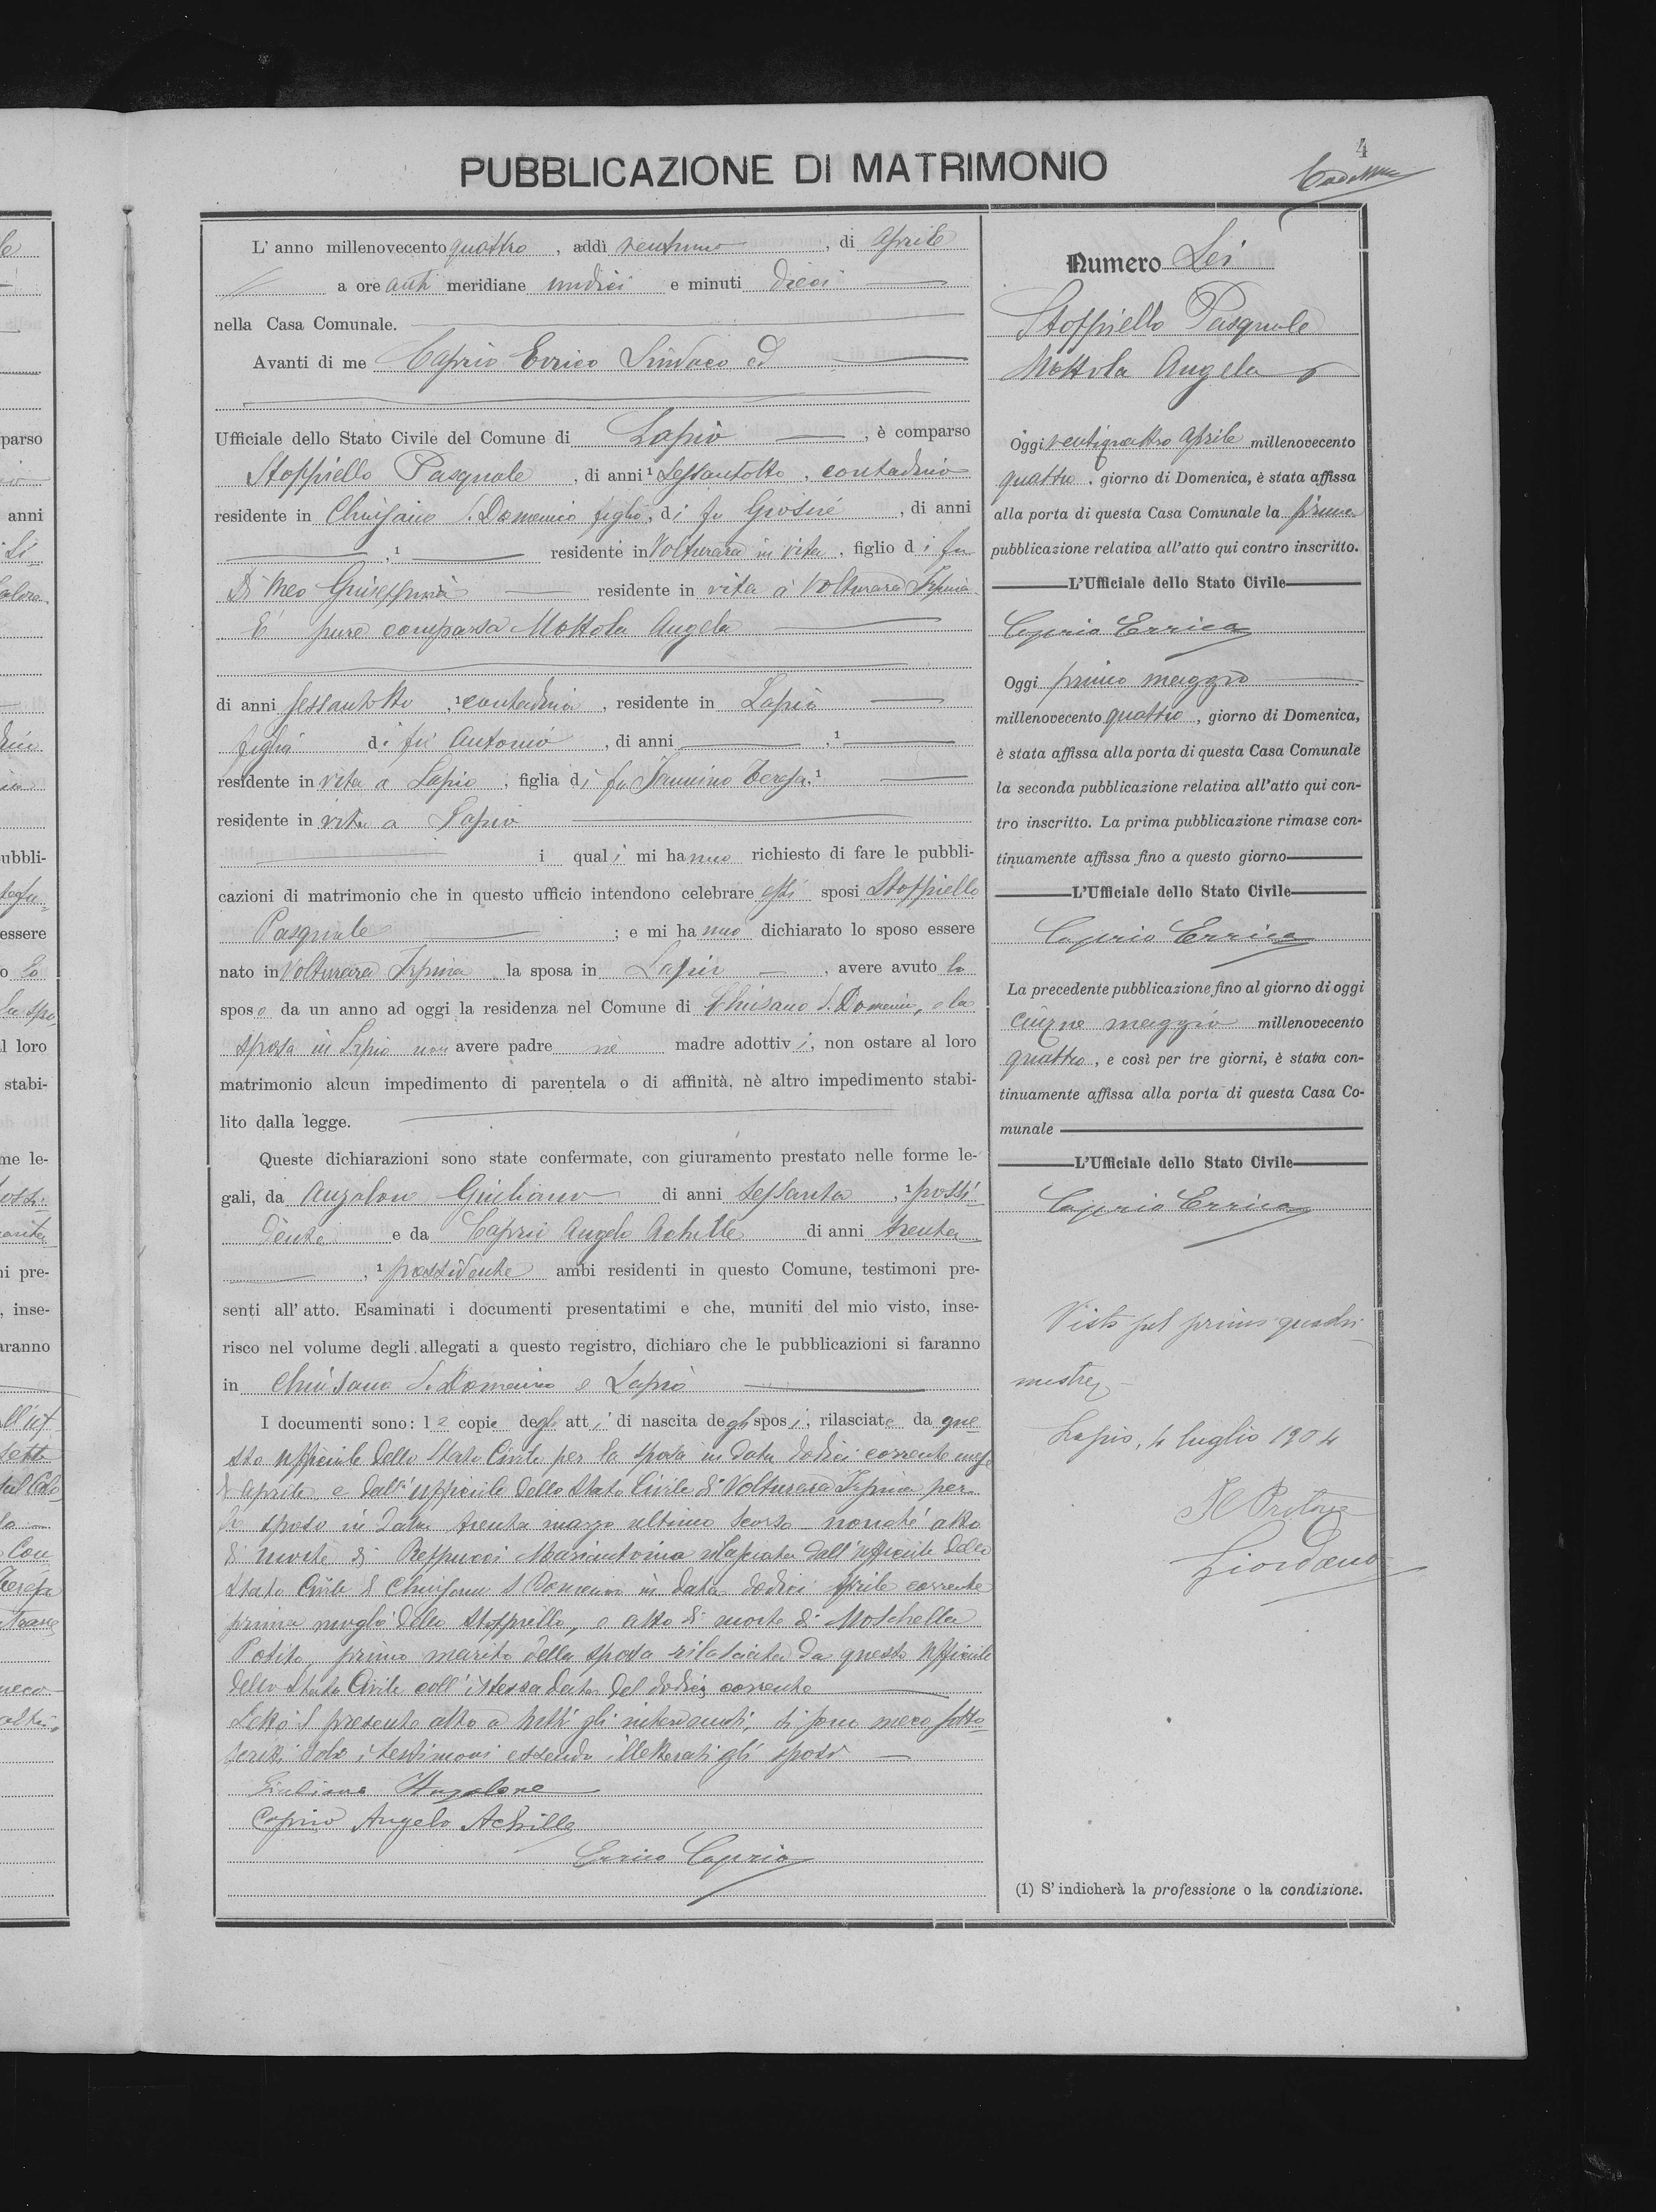 4
PUBBLICAZIONE DI MATRIMONIO
L'anno millenovecento quattro, addì ventuno, di Aprile
a ore anti meridiane undici e minuti dieci
nella Casa Comunale.
Avanti di me Caprio Errico Sindaco ed
Ufficiale dello Stato Civile del Comune di Lapio, è comparso
Stoppiello Pasquale, di anni ¹ Sessantotto, contadino
residente in Chiusano S. Domenico figlio, di fu Giosuè, di anni
,¹ residente in Volturara in vita, figlio di fu
Di Meo Giuseppina residente in vita a Volturara Irpina
È pure comparsa Mottola Angela
di anni sessantotto, ¹ contadina, residente in Lapio
figlia di fu Antonio, di anni ,¹
residente in vita a Lapio, figlia di fu Iannino Teresa,¹
residente in vita a Lapio
i quali mi hanno richiesto di fare le pubbli-
cazioni di matrimonio che in questo ufficio intendono celebrare essi sposi Stoppiello
Pasquale ; e mi hanno dichiarato lo sposo essere
nato in Volturara Irpina la sposa in Lapio, avere avuto lo
sposo da un anno ad oggi la residenza nel Comune di Chiusano S. Domenico, e la
sposa in Lapio non avere padre nè madre adottivi, non ostare al loro
matrimonio alcun impedimento di parentela o di affinità, nè altro impedimento stabi-
lito dalla legge.
Queste dichiarazioni sono state confermate, con giuramento prestato nelle forme le-
gali, da Anzalone Giuliano di anni Sessanta, ¹ possi-
dente e da Caprio Angelo Achille di anni trenta
, ¹ possidente ambi residenti in questo Comune, testimoni pre-
senti all'atto. Esaminati i documenti presentatimi e che, muniti del mio visto, inse-
risco nel volume degli allegati a questo registro, dichiaro che le pubblicazioni si faranno
in Chiusano S. Domenico e Lapio
I documenti sono: l 2 copie degli atti di nascita degli sposi, rilasciate da que-
sto Ufficiale dello Stato Civile per la sposa in data dodici corrente mese
di Aprile e dall'Ufficiale dello Stato Civile di Volturara Irpina per
lo sposo in data trenta marzo ultimo scorso nonché atto
di morte di Reppucci Mariantonia rilasciata dall'Ufficiale dello
Stato Civile di Chiusano S. Domenico in data dodici Aprile corrente
prima moglie dello Stoppiello, e atto di morte di Moschella
Potito, primo marito della sposa rilasciata da questo Ufficiale
dello Stato Civile coll'istessa data del dodici corrente
Letto il presente atto a tutti gli intervenuti, si sono meco sotto-
scritti solo i testimoni essendo illetterati gli sposi
Giuliano Anzalone
Caprio Angelo Achille
Errico Caprio
Numero Sei
Stoppiello Pasquale
Mottola Angela
Oggi ventiquattro Aprile millenovecento
quattro, giorno di Domenica, è stata affissa
alla porta di questa Casa Comunale la prima
pubblicazione relativa all'atto qui contro inscritto.
L'Ufficiale dello Stato Civile
Caprio Errico
Oggi primo maggio
millenovecento quattro, giorno di Domenica,
è stata affissa alla porta di questa Casa Comunale
la seconda pubblicazione relativa all'atto qui con-
tro inscritto. La prima pubblicazione rimase con-
tinuamente affissa fino a questo giorno
L'Ufficiale dello Stato Civile
Caprio Errico
La precedente pubblicazione fino al giorno di oggi
cinque maggio millenovecento
quattro, e così per tre giorni, è stata con-
tinuamente affissa alla porta di questa Casa Co-
munale
L'Ufficiale dello Stato Civile
Caprio Errico
Visto pel primo quadri-
mestre
Lapio, 4 luglio 1904
Il Pretore
Giordano
(1) S'indicherà la professione o la condizione.